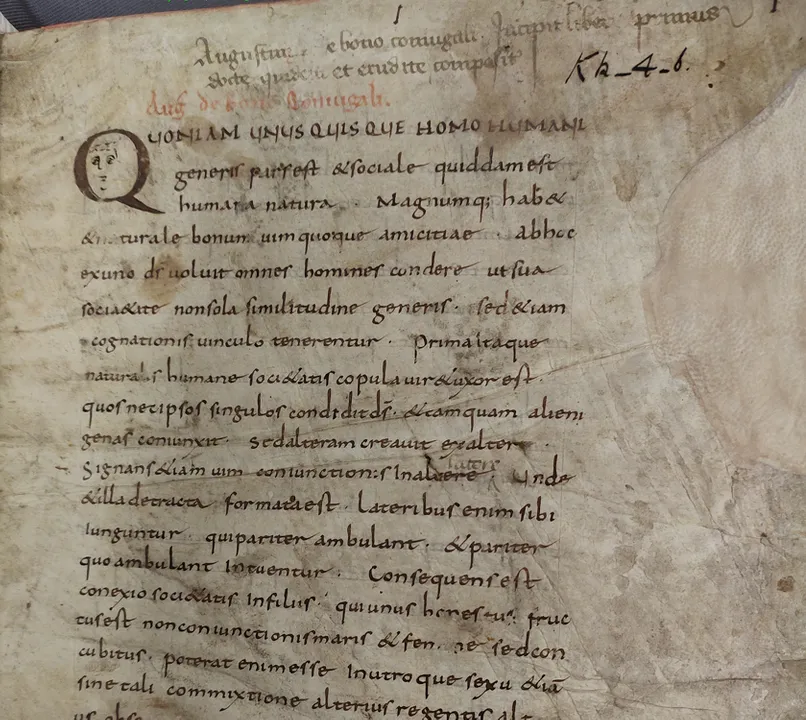 Augustin e bono coniugali. Incipit liber primus
docte quidem et erudite composit
Kk-4-6.
Aug de bono Coniugali.
QUONIAM UNUS QUIS QUE HOMO HUMANI
generis pars est & sociale quiddam est
humana natura . Magnumq; hab&
& naturale bonum uim quoque amicitiae . ab hoc
ex uno ds uoluit omnes homines condere ut sua
soci&ate non sola similitudine generis . sed &iam
cognationis uinculo tenerentur . Prima itaque
naturalis humane soci&atis copula uir & uxor est .
quos nec ipsos singulos condidit ds . & tamquam alieni
genas coniunxit . Sed alteram creauit ex altero .
Signans &iam uim coniunctionis In latere . Unde
& illa detracta formata est . Lateribus enim sibi
Iunguntur . qui pariter ambulant . & pariter
quo ambulant Intuentur . Consequens est
conexio soci&atis In filiis . qui unus fruc
tus est non coniunctionis maris & sed con
cubitus . poterat enim esse In utroque sexu &iā
sine tali commixtione alterius regentis